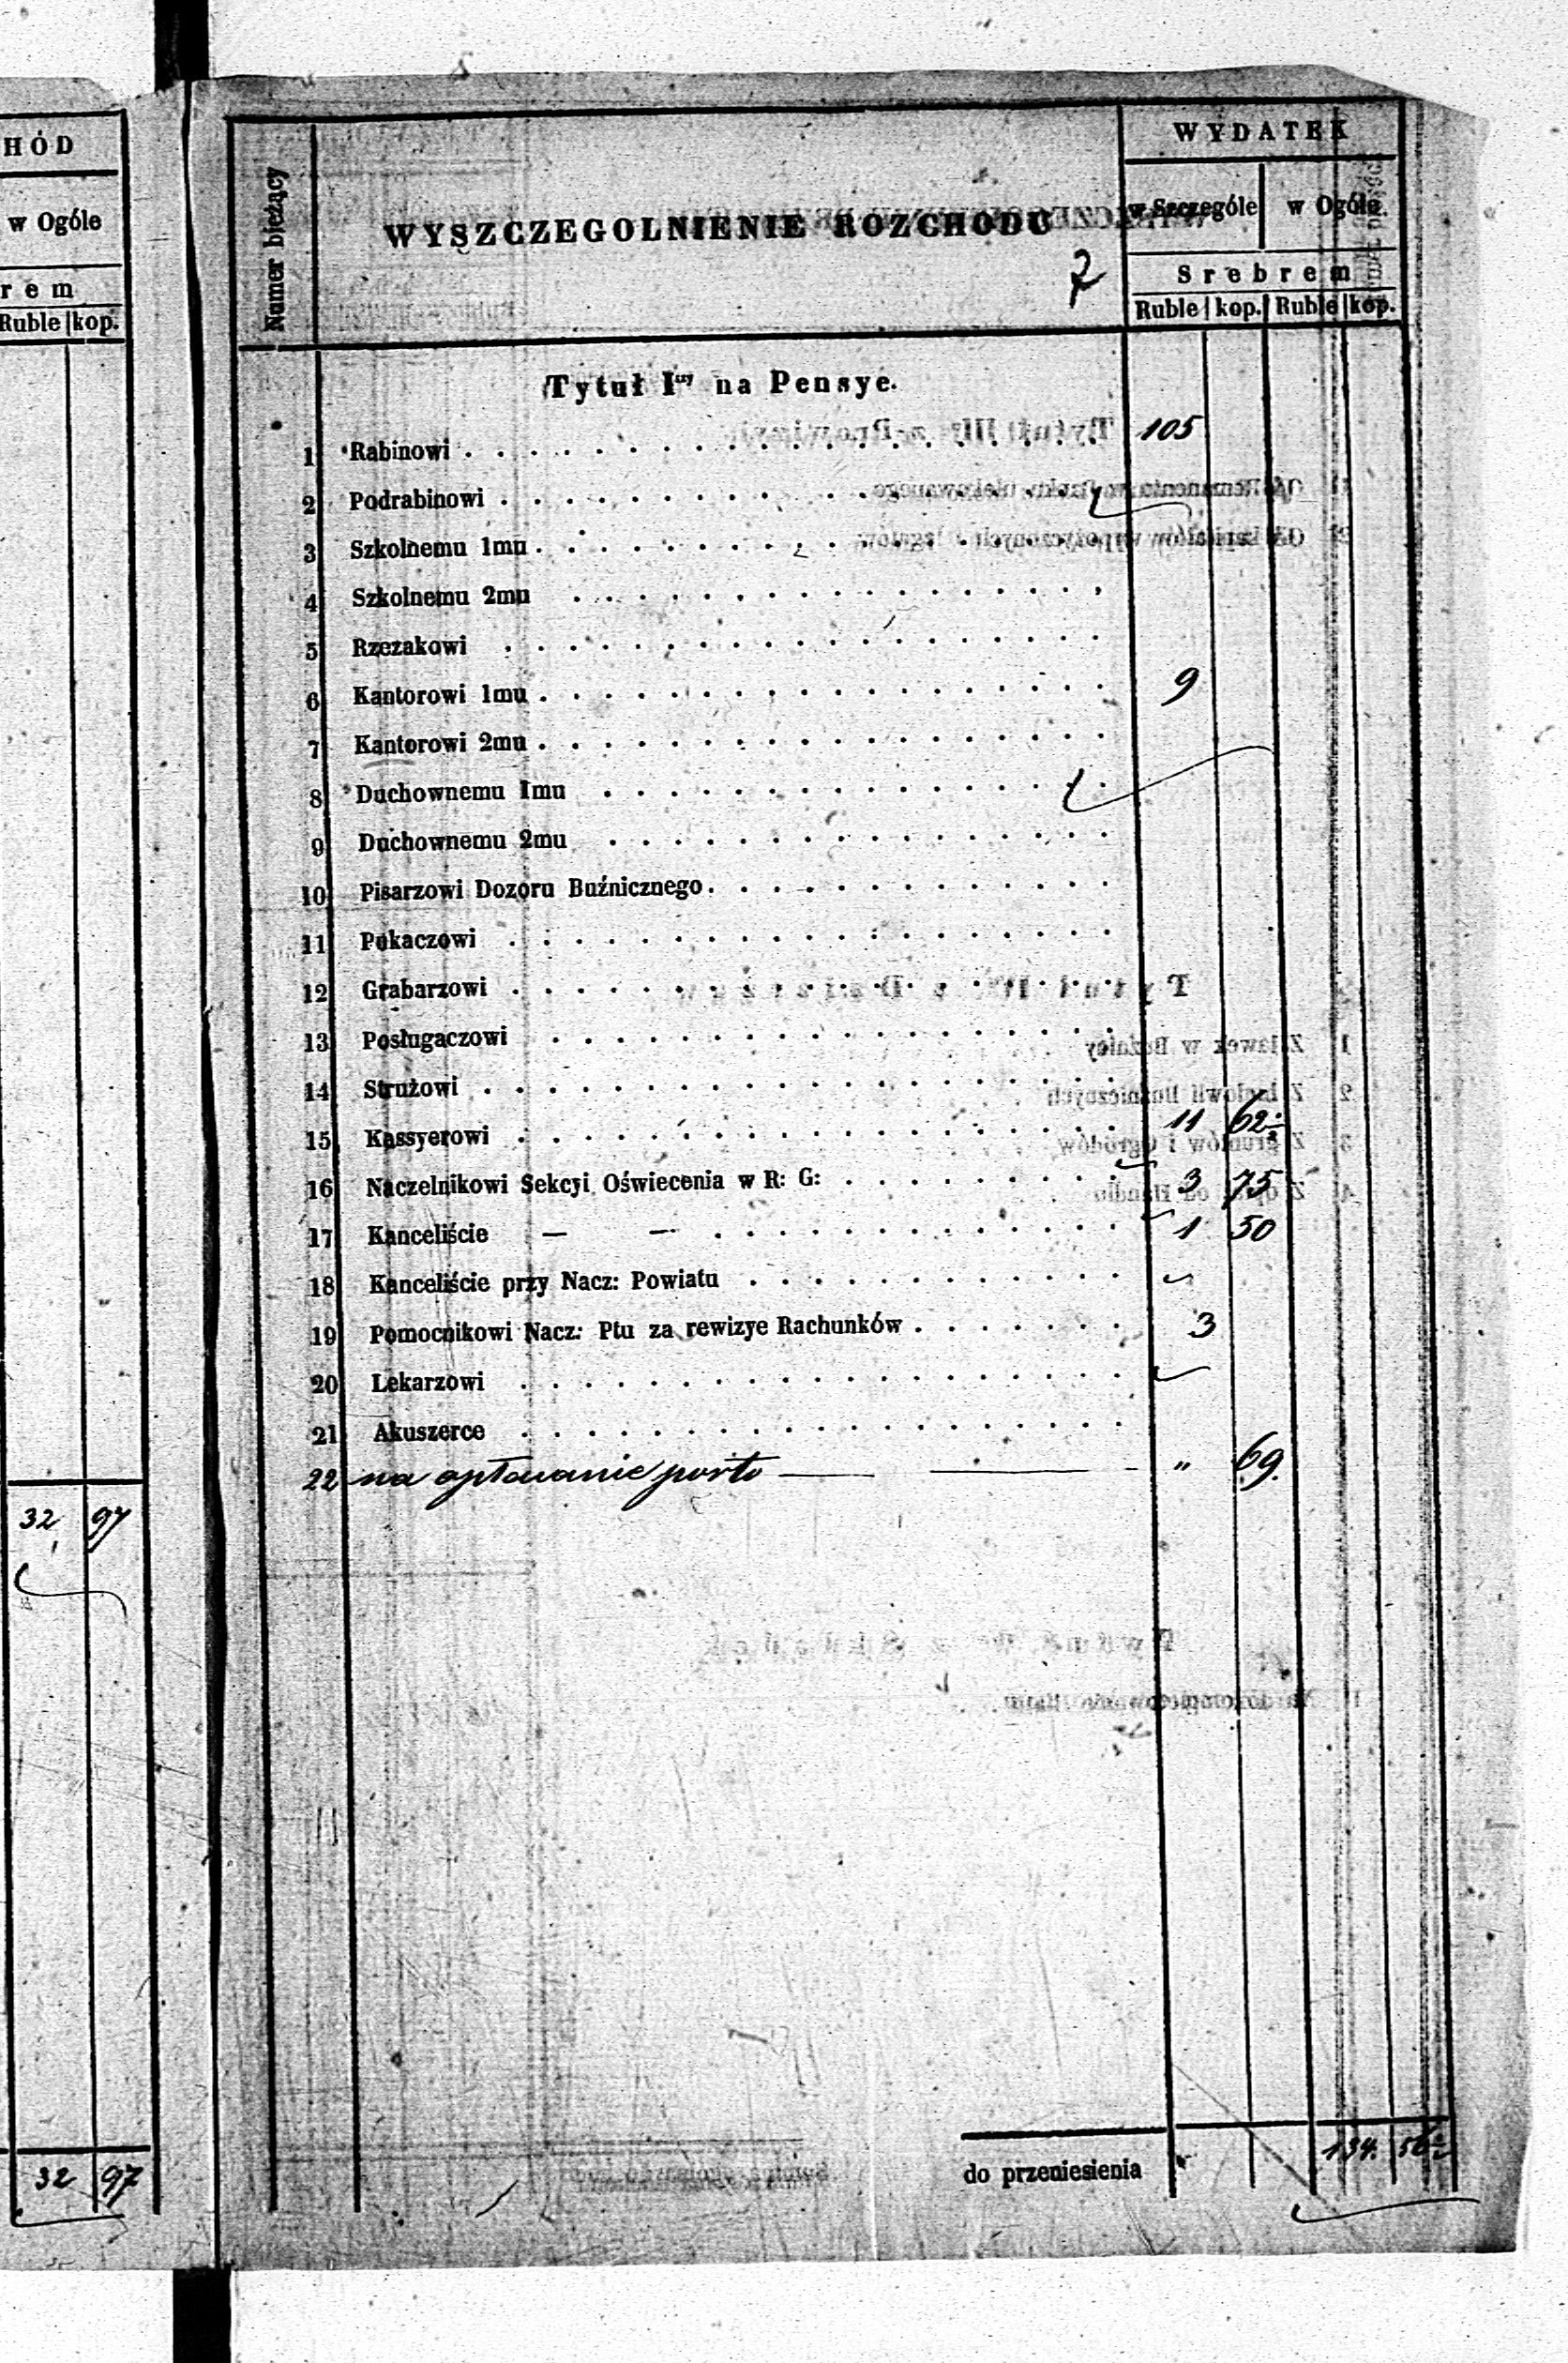 HÓD
w Ogóle
rem
Ruble kop.
32 97
32 97
Numer bieżący
WYSZCZEGOLNIENIE ROZCHODU
7
WYDATEK
w Szczególe w Ogóle.
Srebrem
Ruble kop. Ruble kop.
Tytuł Iszy na Pensye.
1 Rabinowi 105
2 Podrabinowi
3 Szkolnemu 1mu
4 Szkolnemu 2mu
5 Rzezakowi
6 Kantorowi 1mu 9
7 Kantorowi 2mu
8 Duchownemu 1mu
9 Duchownemu 2mu
10 Pisarzowi Dozoru Buźnicznego
11 Pukaczowi
12 Grabarzowi
13 Posługaczowi
14 Strużowi
15 Kassyerowi 11 62½
16 Naczelnikowi Sekcyi Oświecenia w R: G: 3 75
17 Kanceliście — — 1 50
18 Kanceliście przy Nacz: Powiatu
19 Pomocnikowi Nacz: Ptu za rewizye Rachunków 3
20 Lekarzowi
21 Akuszerce
22 na opłacanie porto — — " 69.
do przeniesienia 134. 56½